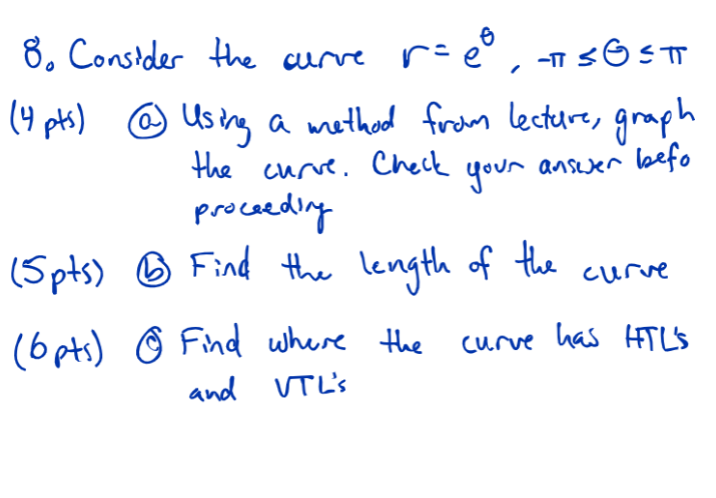 8. Consider the curve r = e^θ, -π ≤ θ ≤ π
(4 pts) ⓐ Using a method from lecture, graph
the curve. Check your answer befo
proceeding
(5 pts) ⓑ Find the length of the curve
(6 pts) ⓒ Find where the curve has HTL's
and VTL's